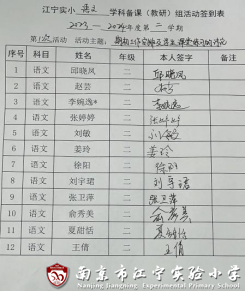 江宁实小 语文 学科备课（教研）组活动签到表
2023 — 2024年度第二学期
第 次活动 活动主题：
序号 科目 姓名 年级 本人签字 备注
1 语文 邱晓凤 二 邱晓凤
2 语文 赵芸 二
3 语文 李婉逸* 二
4 语文 张婷婷 二
5 语文 刘敏 二 刘敏
6 语文 姜玲 二 姜玲
7 语文 徐阳 二 徐阳
8 语文 刘宇珺 二 刘宇珺
9 语文 张卫萍 二 张卫萍
10 语文 俞秀美 二 俞秀美
11 语文 夏甜恬 二
12 语文 王倩 二 王倩
南京市江宁实验小学
Nanjing Jiangning Experimental Primary School